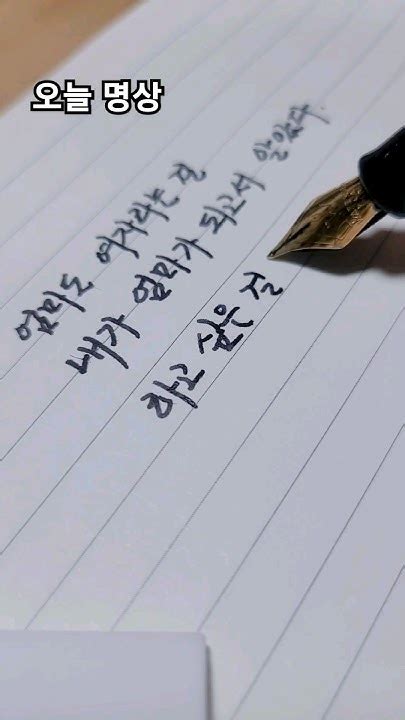 오늘 명상
엄마도 여자라는 걸
내가 엄마가 되고서 알았다.
하고 싶은 걸